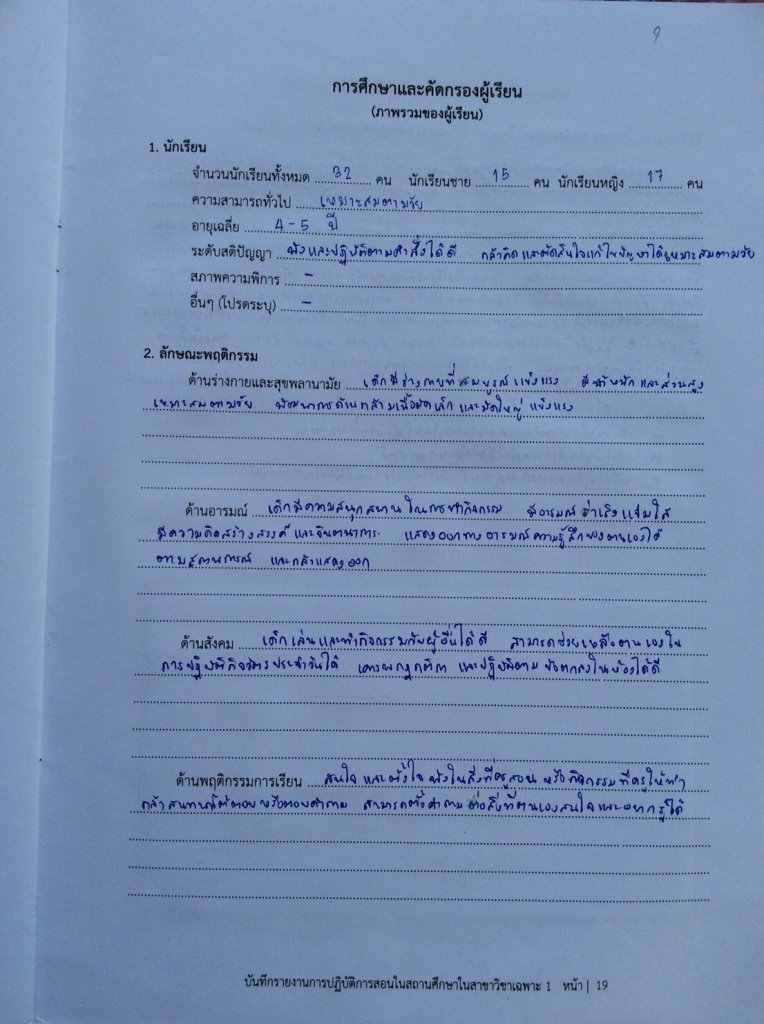 9
การศึกษาและคัดกรองผู้เรียน
(ภาพรวมของผู้เรียน)
1. นักเรียน
จำนวนนักเรียนทั้งหมด 32 คน นักเรียนชาย 15 คน นักเรียนหญิง 17 คน
ความสามารถทั่วไป เหมาะสมตามวัย
อายุเฉลี่ย 4-5 ปี
ระดับสติปัญญา ฟังและปฏิบัติตามคำสั่งได้ดี กล้าคิดและตัดสินใจแก้ไขปัญหาได้เหมาะสมตามวัย
สภาพความพิการ -
อื่นๆ (โปรดระบุ) -
2. ลักษณะพฤติกรรม
ด้านร่างกายและสุขพลานามัย เด็กมีร่างกายที่สมบูรณ์ แข็งแรง มีน้ำหนักและส่วนสูง
เหมาะสมตามวัย พัฒนาการด้านกล้ามเนื้อมัดเล็กและมัดใหญ่ แข็งแรง
ด้านอารมณ์ เด็กมีความสนุกสนานในการทำกิจกรรม มีอารมณ์ร่าเริงแจ่มใส
มีความคิดสร้างสรรค์และจินตนาการ แสดงออกทางอารมณ์ความรู้สึกของตนเองได้
ตามสถานการณ์ และกล้าแสดงออก
ด้านสังคม เด็กเล่นและทำกิจกรรมกับผู้อื่นได้ดี สามารถช่วยเหลือตนเองใน
การปฏิบัติกิจวัตรประจำวันได้ เคารพกฎกติกา และปฏิบัติตามข้อตกลงในห้องได้ดี
ด้านพฤติกรรมการเรียน สนใจและตั้งใจฟังในสิ่งที่ครูสอน หรือกิจกรรมที่ครูให้ทำ
กล้าสนทนาโต้ตอบหรือตอบคำถาม สามารถตั้งคำถามต่อสิ่งที่ตนเองสนใจและอยากรู้ได้
บันทึกรายงานการปฏิบัติการสอนในสถานศึกษาในสาขาวิชาเฉพาะ 1 หน้า | 19